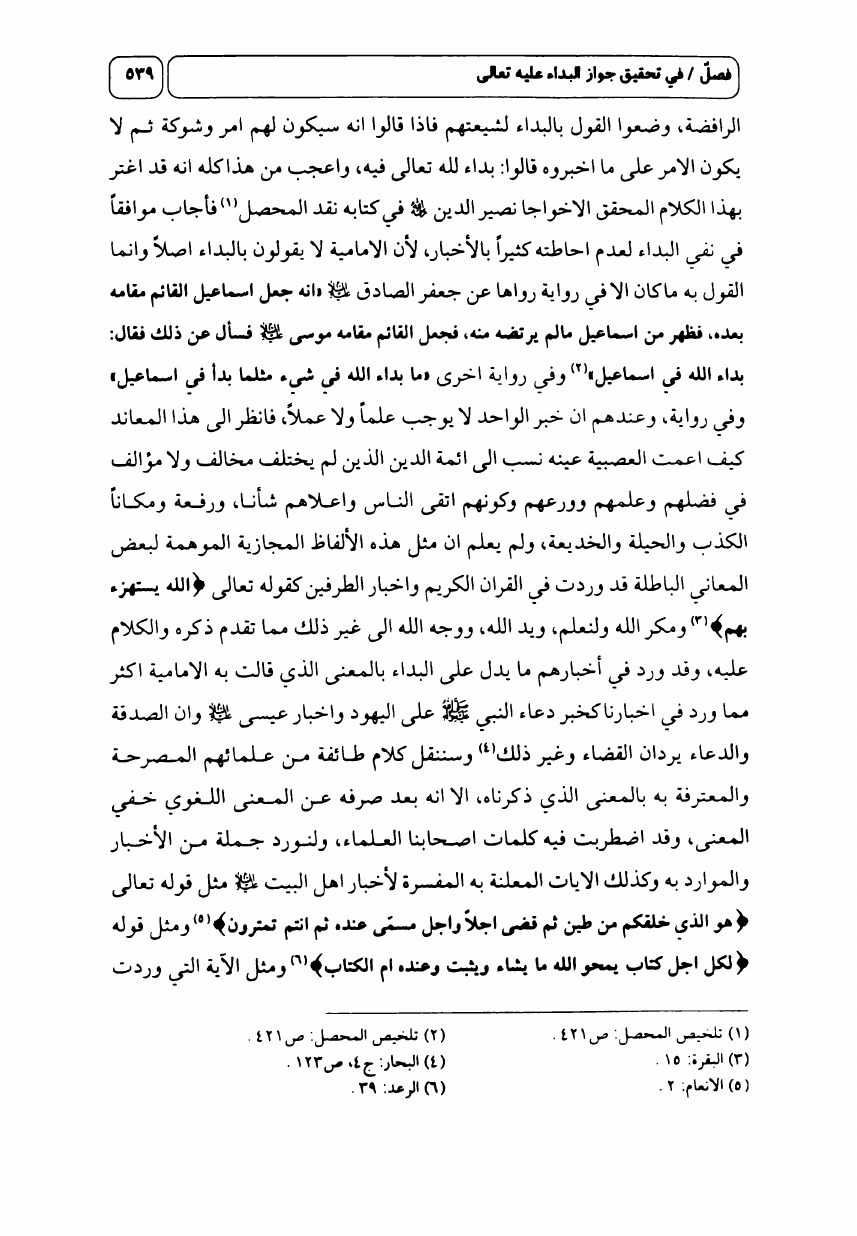 فصلّ / في تحقيق جواز البداء عليه تعالى
٥٣٩
الرافضة، وضعوا القول بالبداء لشيعتهم فاذا قالوا انه سيكون لهم امر وشوكة ثـم لا
يكون الامر على ما اخبروه قالوا: بداء لله تعالى فيه، واعجب من هذا كله انه قد اغتر
بهذا الكلام المحقق الاخواجا نصير الدين ﷺ في كتابه نقد المحصل(١) فأجاب موافقاً
في نفي البداء لعدم احاطته كثيراً بالأخبار، لأن الامامية لا يقولون بالبداء اصلاً وانما
القول به ما كان الا في رواية رواها عن جعفر الصادق ﷺ «انه جعل اسماعيل القائم مقامه
بعده، فظهر من اسماعيل مالم يرتضه منه، فجعل القائم مقامه موسى ﷺ فسأل عن ذلك فقال:
بداء الله في اسماعيل»(٢) وفي رواية اخرى «ما بداء الله في شيء مثلما بدأ في اسماعيل»
وفي رواية، وعندهم ان خبر الواحد لا يوجب علماً ولا عملاً، فانظر الى هذا المعاند
كيف اعمت العصبية عينه نسب الى ائمة الدين الذين لم يختلف مخالف ولا مؤالف
في فضلهم وعلمهم وورعهم وكونهم اتقى النـاس واعـلاهم شأنـا، ورفـعة ومكـاناً
الكذب والحيلة والخديعة، ولم يعلم ان مثل هذه الألفاظ المجازية الموهمة لبعض
المعاني الباطلة قد وردت في القران الكريم واخبار الطرفين كقوله تعالى ﴿الله يستهزء
بهم﴾(٣) ومكر الله ولنعلم، ويد الله، ووجه الله الى غير ذلك مما تقدم ذكره والكلام
عليه، وقد ورد في أخبارهم ما يدل على البداء بالمعنى الذي قالت به الامامية اكثر
مما ورد في اخبارنا كخبر دعاء النبي ﷺ على اليهود واخبار عيسى ﷺ وان الصدقة
والدعاء يردان القضاء وغير ذلك(٤) وسننقل كلام طـائفة مـن عـلمائهم المـصرحـة
والمعترفة به بالمعنى الذي ذكرناه، الا انه بعد صرفه عـن المـعنى اللـغوي خـفي
المعنى، وقد اضطربت فيه كلمات اصحابنا العـلماء، ولنـورد جـملة مـن الأخـبار
والموارد به وكذلك الايات المعلنة به المفسرة لأخبار اهل البيت ﷺ مثل قوله تعالى
﴿هو الذي خلقكم من طين ثم قضى اجلاً واجل مسمّى عنده ثم انتم تمترون﴾(٥) ومثل قوله
﴿لكل اجل كتاب يمحو الله ما يشاء ويثبت وعنده ام الكتاب﴾(٦) ومثل الآية التي وردت
(١) تلخيص المحصل: ص٤٢١ .
(٢) تلخيص المحصل: ص٤٢١ .
(٣) البقرة: ١٥ .
(٤) البحار: ج٤، ص١٢٣ .
(٥) الانعام: ٢ .
(٦) الرعد: ٣٩ .